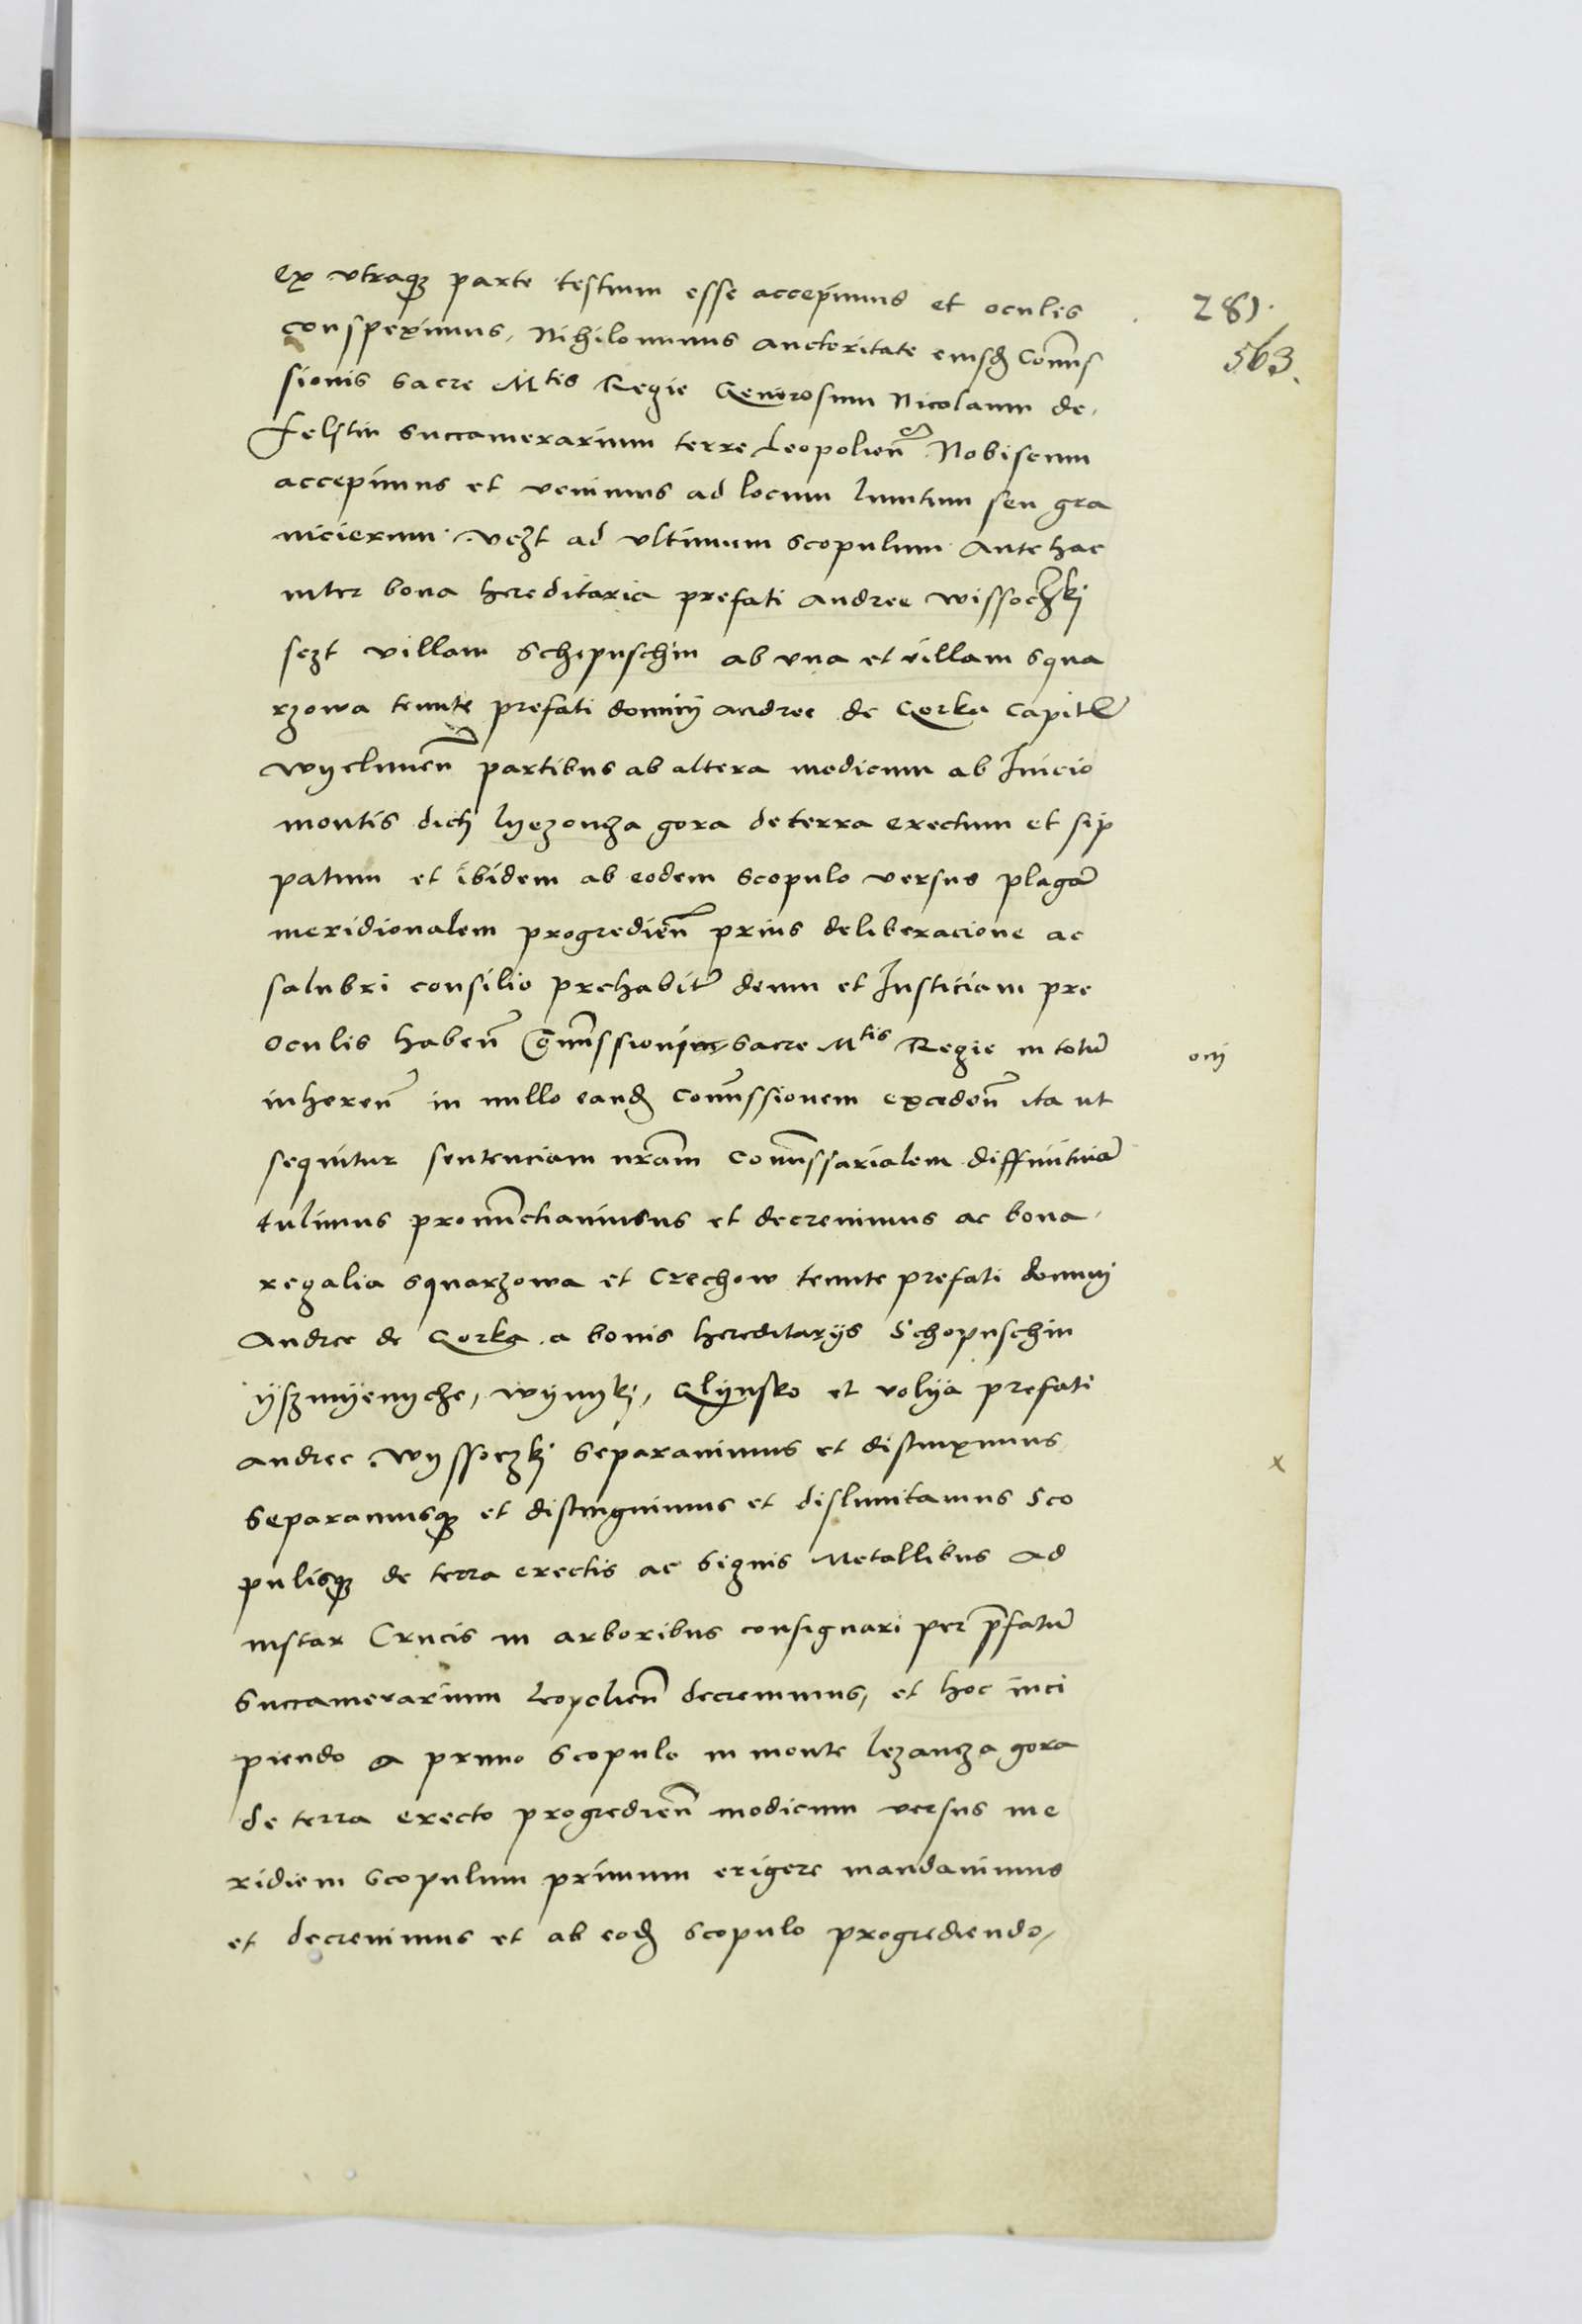 Ex vtraq3 parte testium esse accepimus et oculis
conspeximus, Nihilominus auctoritate eiusd Comis
sionis Sacre Mtis Regie Generosum Nicolaum de
Felstin Succamerarium terre Leopolien Nobiscum
accepimus et venimus ad locum limitum seu gra
nicierum vczt ad vltimum scopulum Ante hac
inter bona hereditaria prefati Andree Wissoczkj
sczt villam Schepuschin ab vna et villam Squa
rzowa tenute prefati dominj Andree de Gorka Capit
Wyelunen partibus ab altera modicum ab Inicio
montis dicti lyezoncza gora de terra erectum et sip
patum et ibidem ab eodem scopulo versus plaga
meridionalem progredien prius deliberacione ac
salubri consilio prehabit deum et Iusticiam pre
oculis haben Comissionis Sacre Mtis Regie in totu
inheren in nullo eand Comissionem exceden ita ut
sequitur sentenciam nram Comissarialem diffinitiua
tulimus pronunctiauimus et decreuimus ac bona
regalia Squarzowa et Crechow tenute prefati dominj
Andree de Gorka a bonis hereditarijs Schopuschin
yszmyenyche, Wynykj, Glynsko et volya prefati
Andree Wyssoczkj Separauimus et distinximus
Separamusq3 et distinguimus et dislimitamus Sco
pulisq3 de terra erectis ac Signis Metallibus Ad
instar Crucis in arboribus consignari per pfatu
Succamerarium Leopolien decreuimus, et hoc inci
piendo a primo Scopulo in monte lezancza gora
de terra erecto progredien modicum versus me
ridiem Scopulum primum erigere mandauimus
et decreuimus et ab eod Scopulo progrediendo,
281.
563.
onij
x